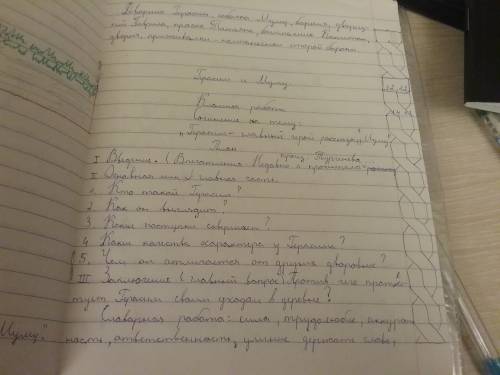 Дворник Герасим, собака Муму, барыня, дворец-
кий Гаврила, прачка Татьяна, башмачник Капитон,
дворня, приживалки
Герасим и Муму.
Классная работа
Сочинение на тему:
"Герасим - главный герой рассказа "Муму"
План
произ. Тургенева
I Введение. (Впечатления Недавно я прочитала рассказ
II Основная или главная часть.
1. Кто такой Герасим?
2. Как он выглядит?
3. Какие поступки совершает?
4. Какие качества характера у Герасима?
5. Чем он отличается от других дворовых?
III Заключение (главный вопрос) Против чего протес-
тует Герасим своим уходом в деревню?
Словарная работа: сила, трудолюбие, аккурат-
ность, ответственность, умение держать слово,
Муму".